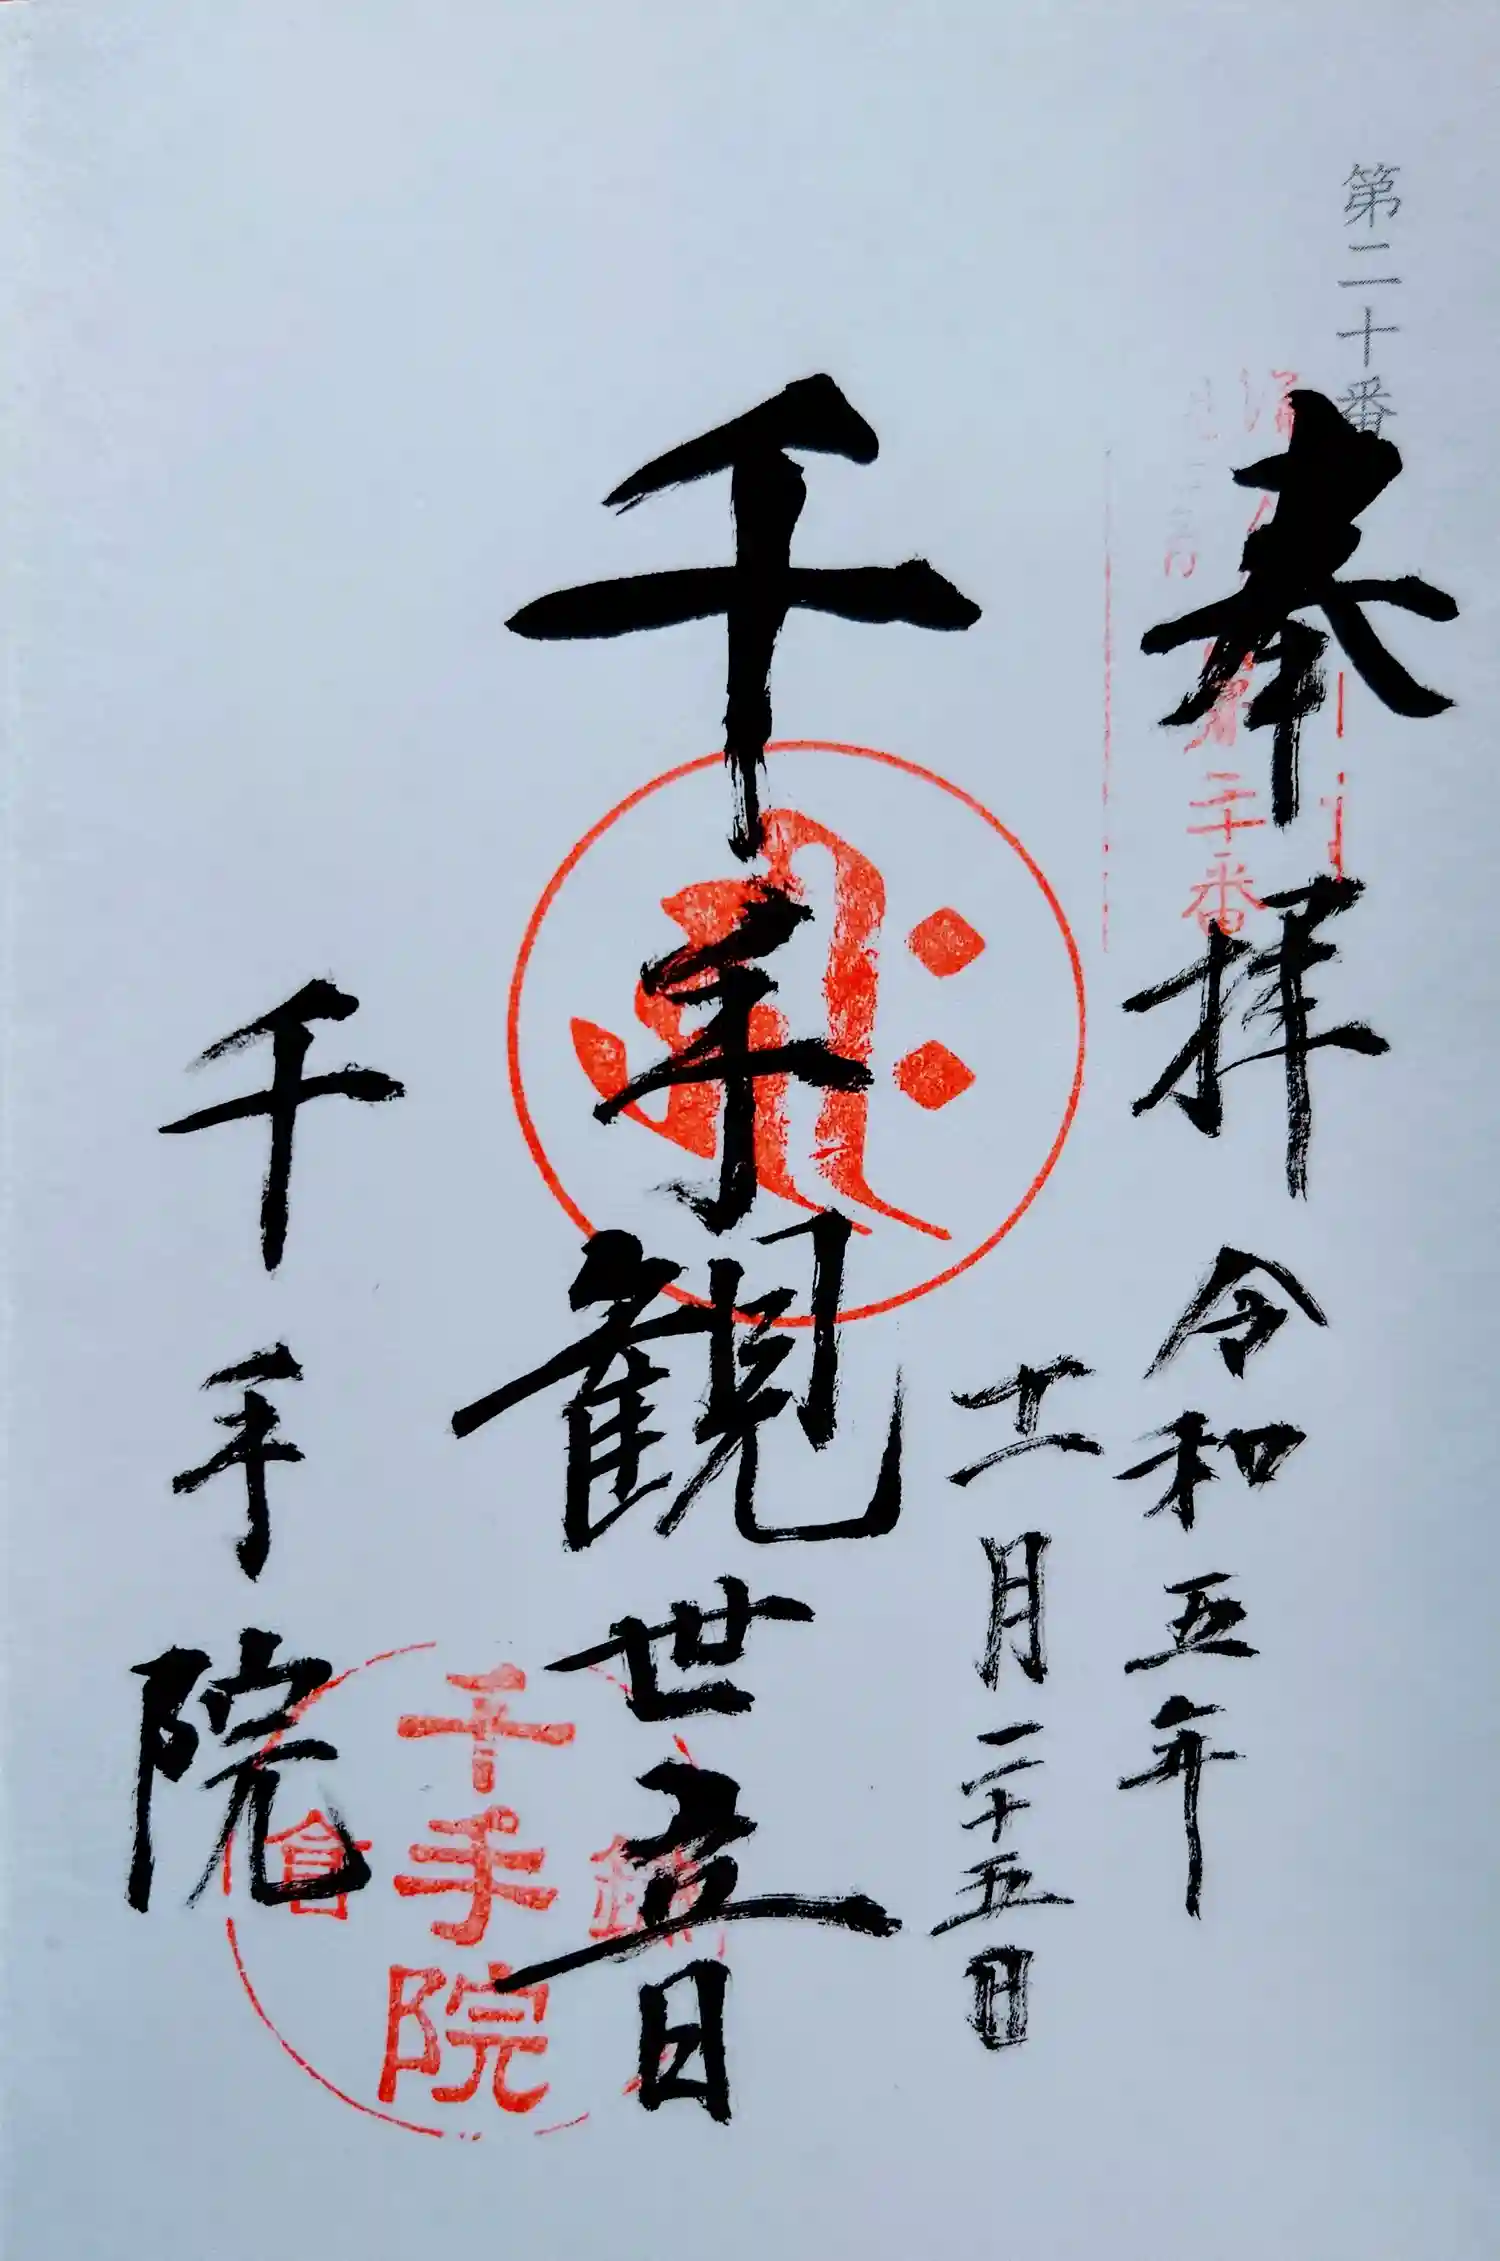 第二十番
奉拝 令和五年
十一月二十五日
第二十番
千手観世音
千手院
千手院